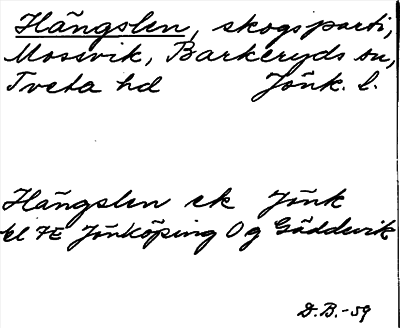 Hängslen, skogsparti,
Mossvik, Barkeryds sn,
Tveta hd Jönk. l.
Hängslen ek Jönk
bl 7E Jönköping Og Gäddevik
D.B.-59